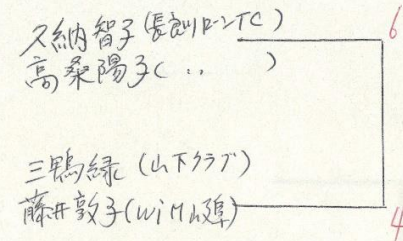 久納智子(長良川ローンTC)
高桑陽子( 〃 )
6
三鴨緑(山下クラブ)
藤井敦子(Wim山陽)
4